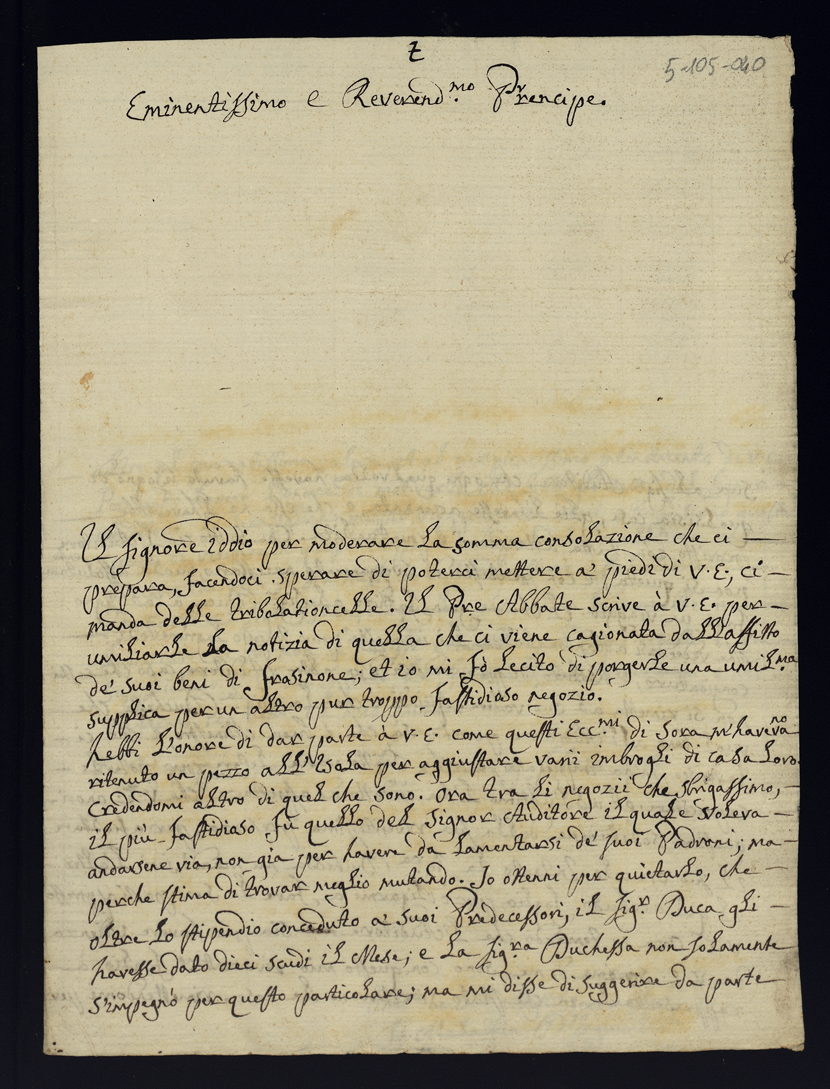 5-105-040
Eminentissimo e Reverend.mo Prencipe.
Il Signore Iddio per moderare la somma consolazione che ci —
prepara, facendoci sperare di poterci mettere a' piedi di V. E., ci —
manda delle tribolationcelle. Il Pre Abbate scrive à V. E. per —
umiliarle la notizia di quella che ci viene cagionata dall'affitto
de' suoi beni di Frasinone; et io mi fò lecito di porgerle una umil.ma
supplica per un altro pur troppo fastidioso negozio.
Hebbi l'onore di dar parte à V. E. come questi Ecc.mi di Sora m'havevano
ritenuto un pezzo all'Isola per aggiustare varii imbrogli di casa loro.
credendomi altro di quel che sono. Ora tra li negozii che sbrigassimo, —
il più fastidioso fu quello del Signor Auditore il quale voleva —
andarsene via, non gia per havere da lamentarsi de' suoi Padroni; ma —
perche stima di trovar meglio mutando. Io ottenni per quietarlo, che —
oltre lo stipendio conceduto a' suoi Predecessori, il Sig.r Duca gli —
havesse dato dieci scudi il Mese; e la Sig.ra Duchessa non solamente
s'impegnò per questo particolare; ma mi disse di suggerire da parte